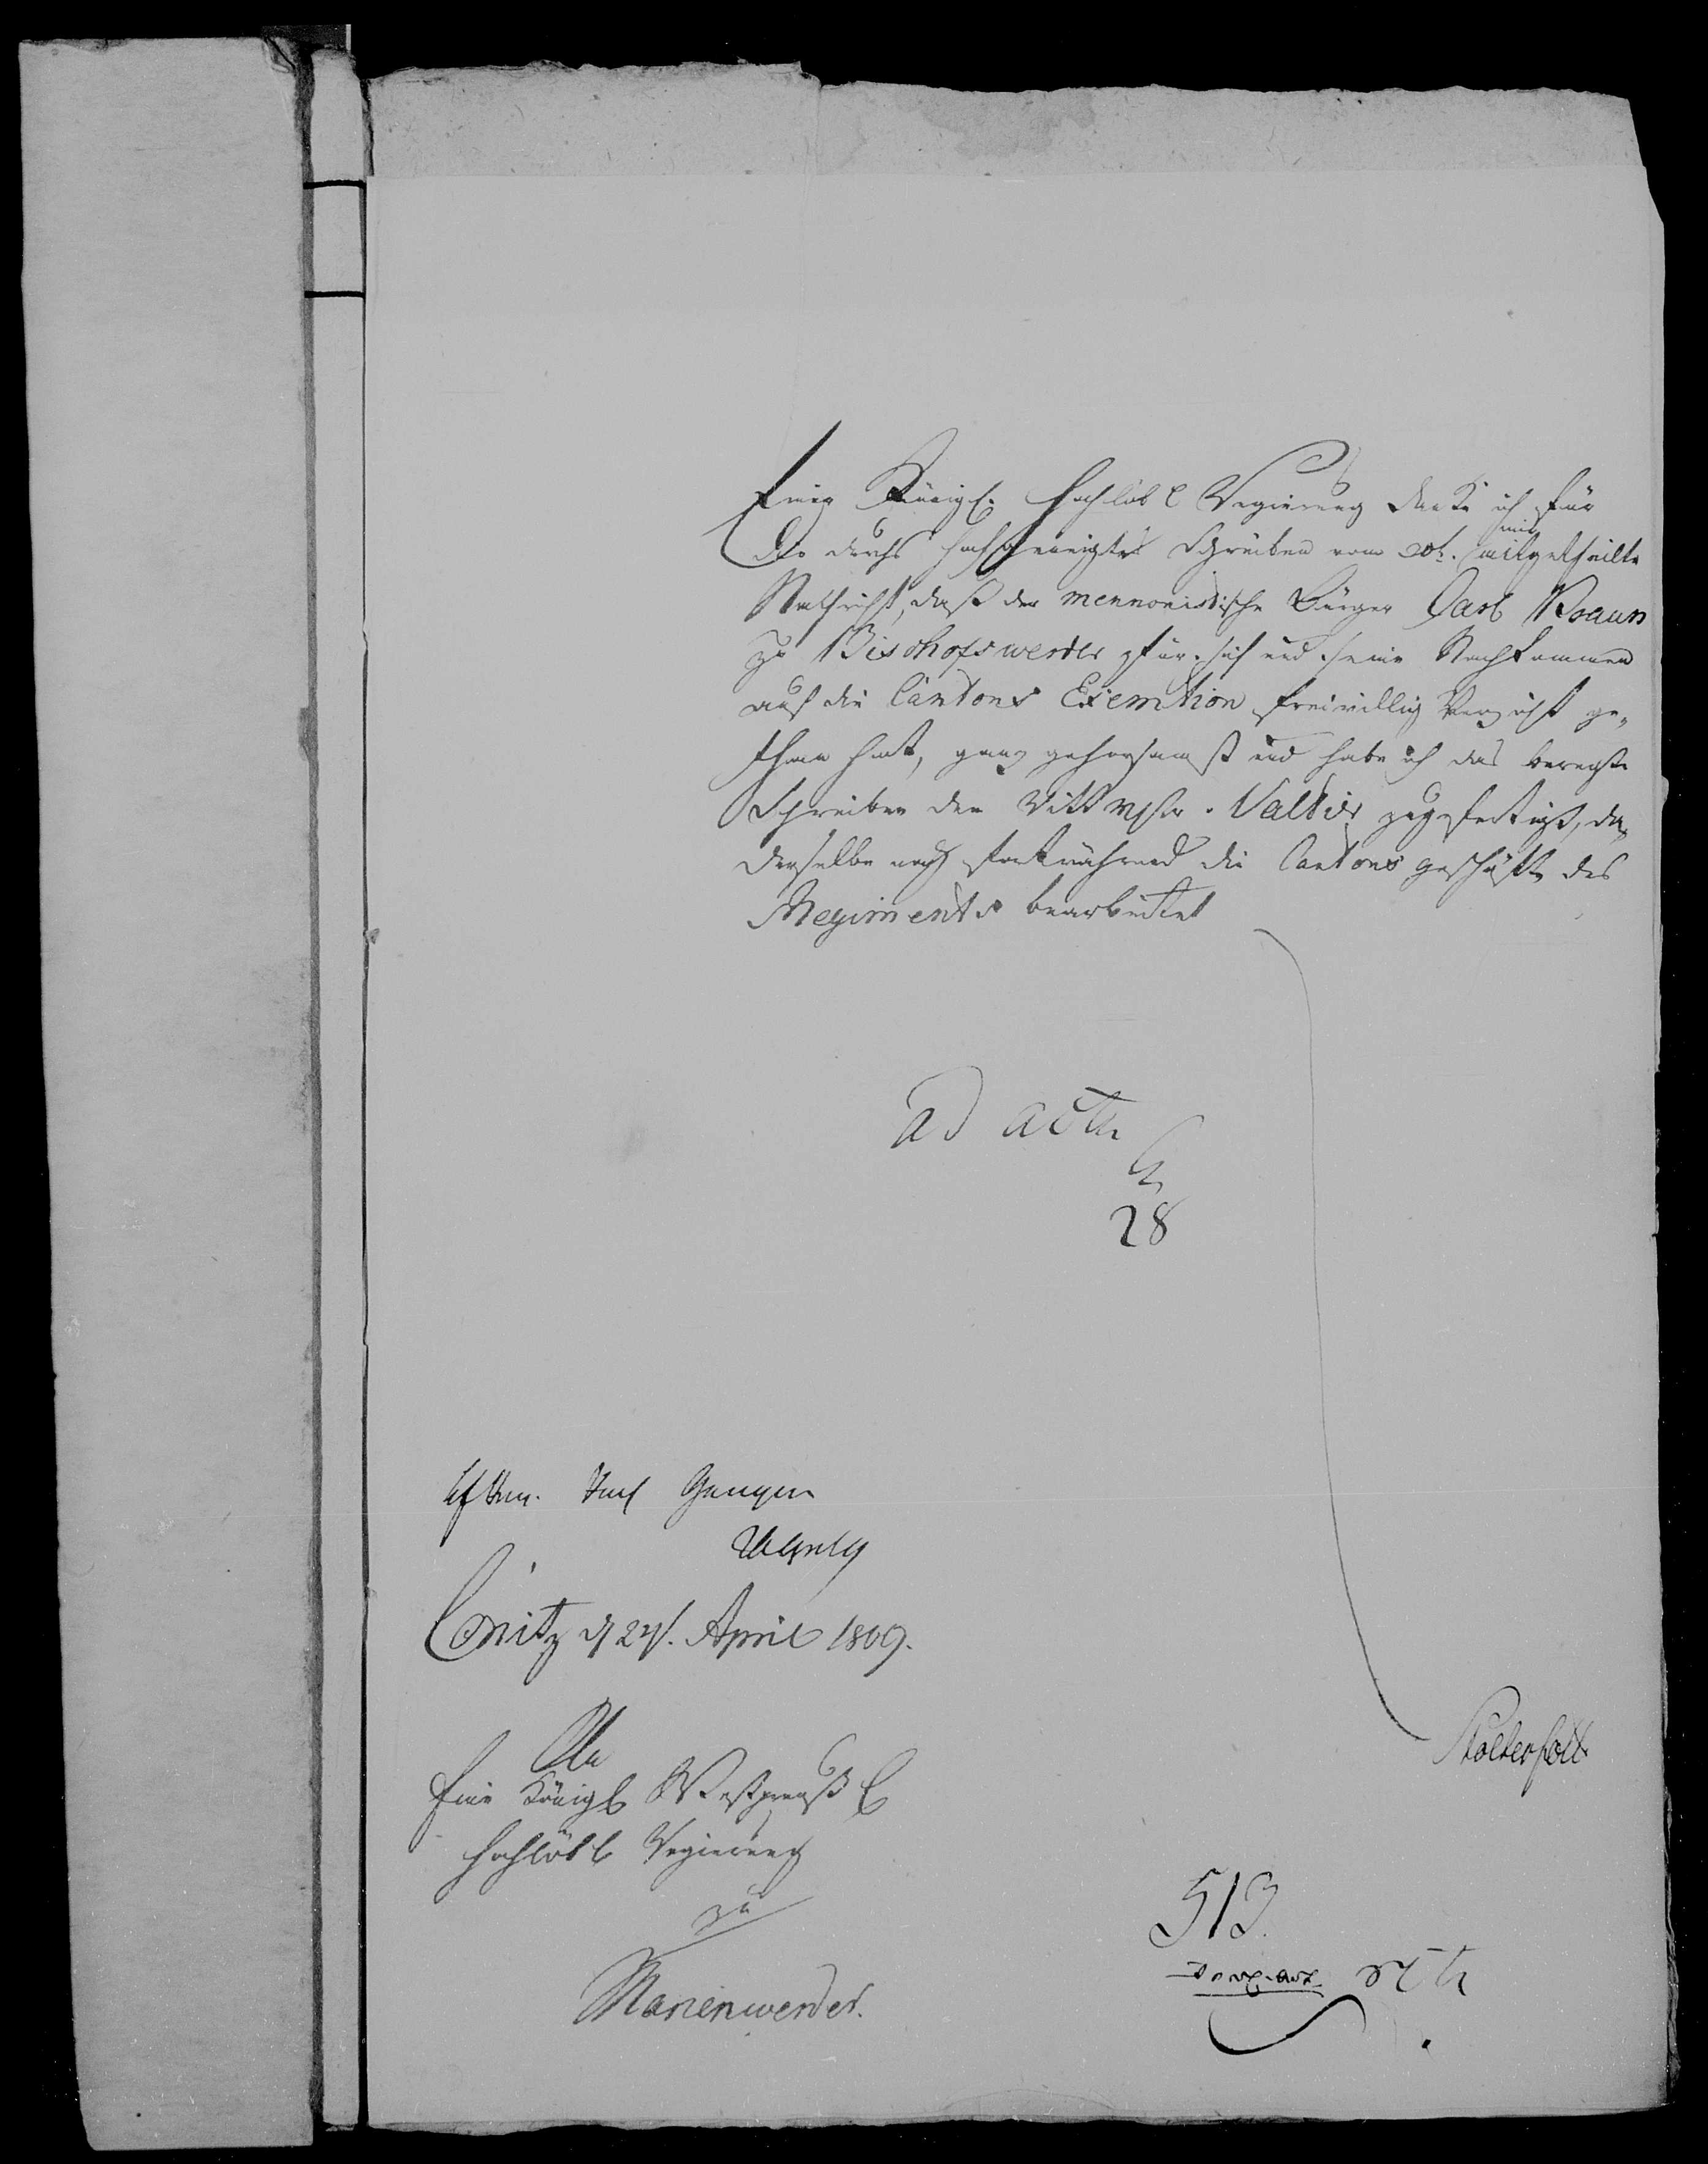 Einer Königl. Hochlöbl Regierung danke ich für
die durchs hochgeneigtes Schreiben vom mir mitgetheilte
Nachricht, daß der mennonistische Bürger Carl Braun
zu Bischofswerder für sich und seine Nachkommen
auf die Cantons Exemtion freiwillig Verzicht ge-
than hat, ganz gehorsamst und habe ich das beregte
Schreiben dem Rittmstr. zugefertigt, da
derselbe noch fortwährend die Cantons geschäfte des
Regiments bearbeitet
ad acta
28
Conitz d 24t. April 1809.
Stolterfott
An
Eine Königl Westpreuß
Hochlöbl Regierung
zu
Marienwerder.
513.